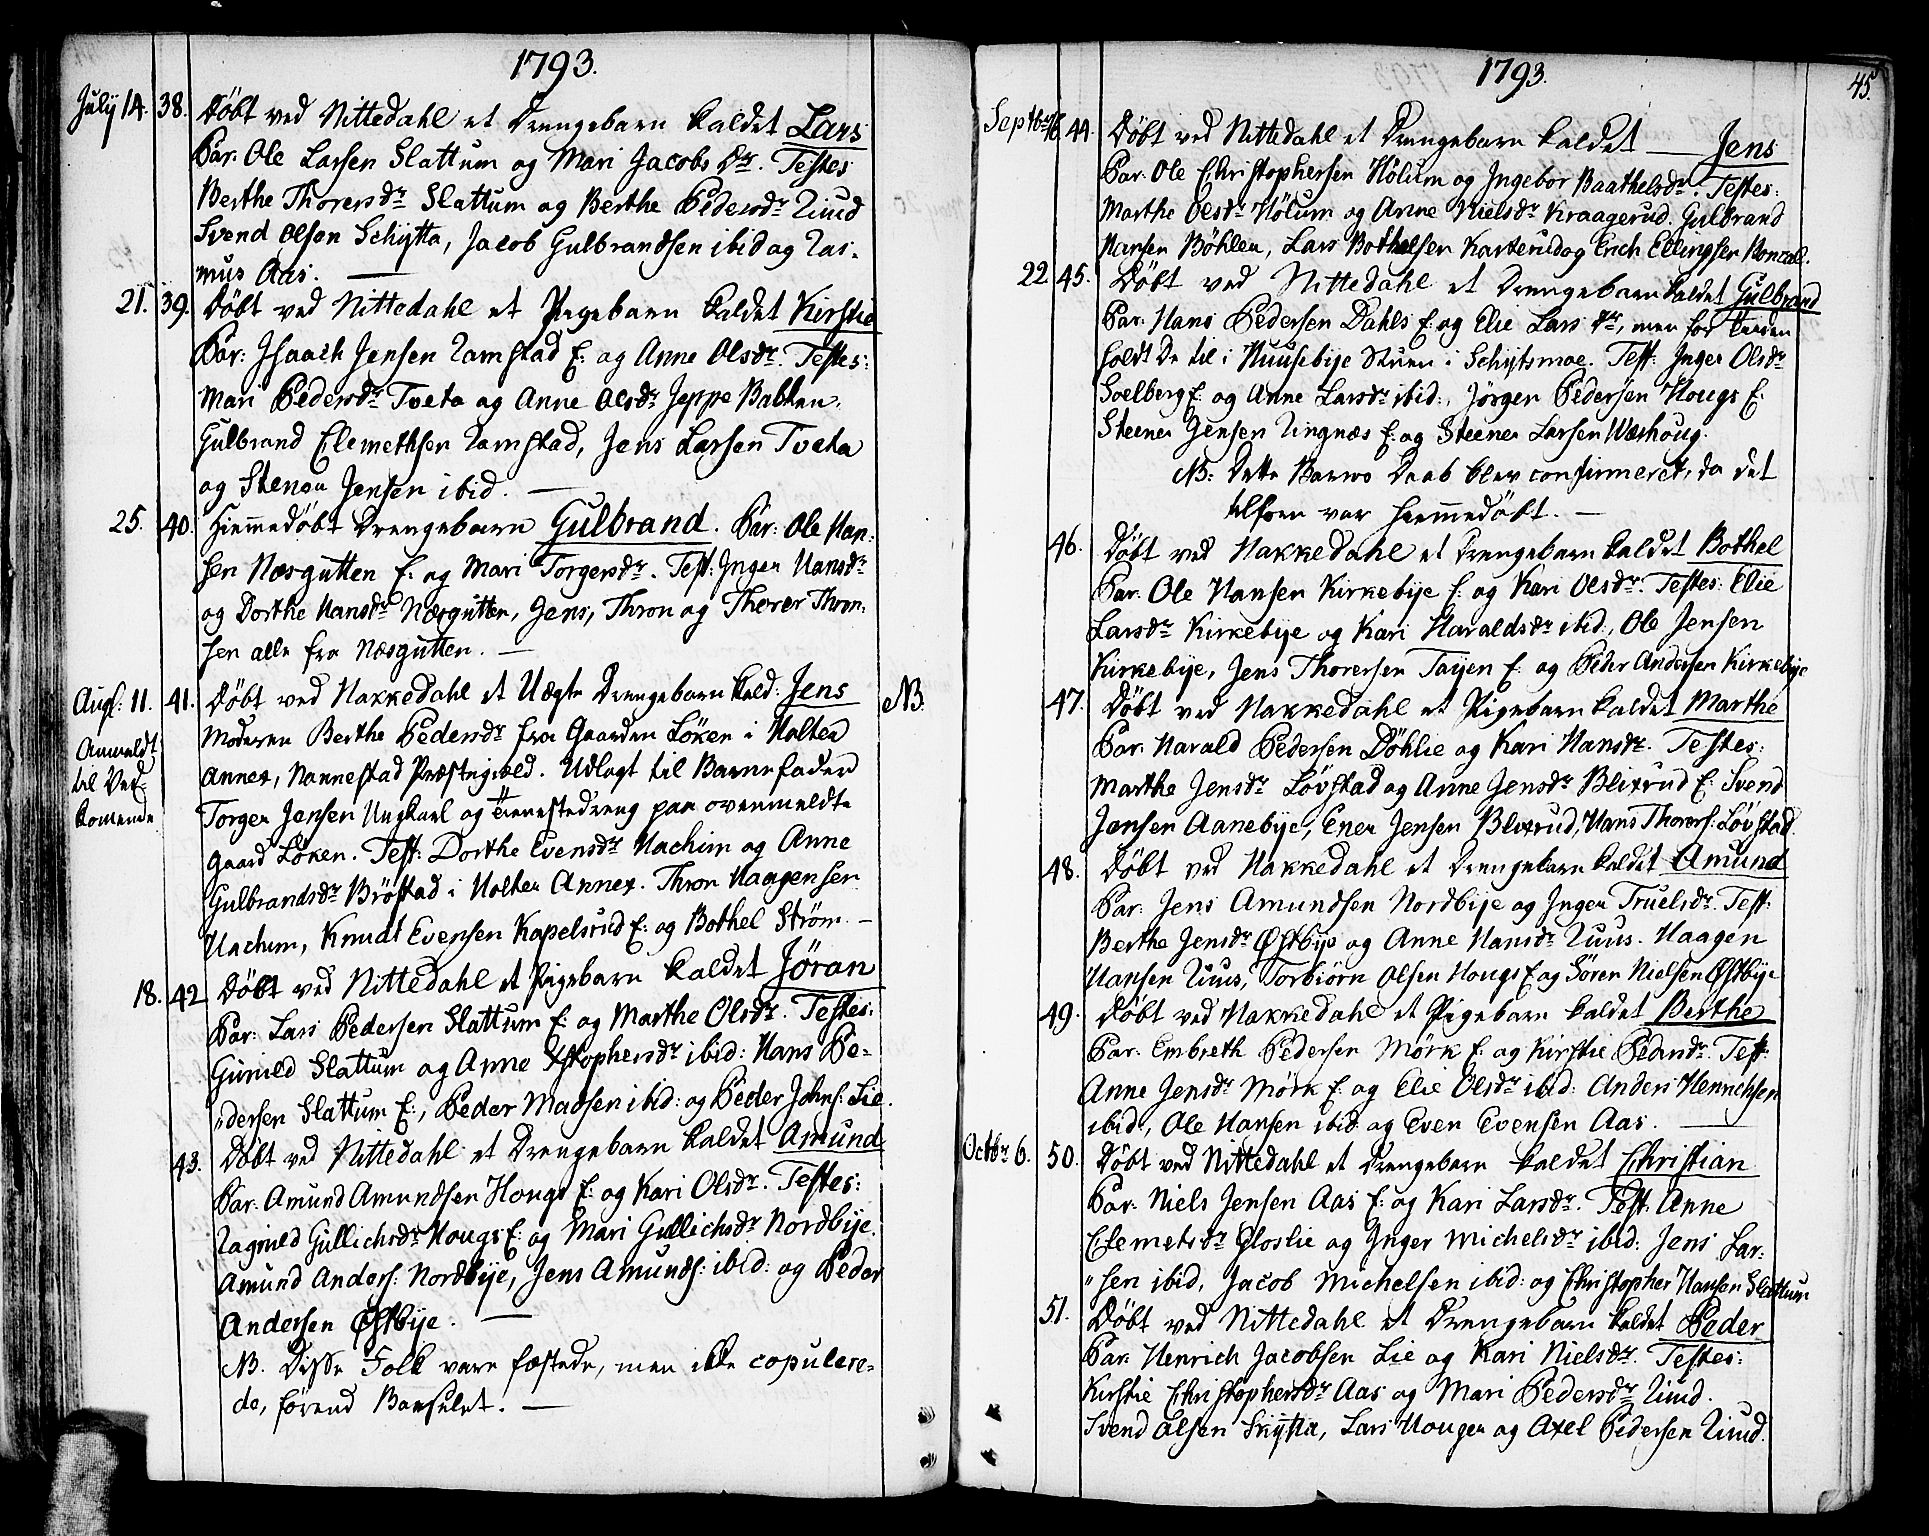 1793.
July 14. 38. Döbt ved Nittedahl et Drengebarn kaldet Lars
Par: Ole Larsen Slattum og Mari Jacobs Dr. Testes
Berthe Thorersdr Slattum og Berthe Pedersdr Ruud
Svend Olsen Schytta, Jacob Gulbrandsen ibid og Ras-
mus Aas. —
21. 39. Döbt ved Nittedahl et Pigebarn kaldet Kirstie
Par: Isaach Jensen Ramstad E: og Anne Olsdr. Testes:
Mari Pedersdr Tveta og Anne Olsdr Jeppe Bakken.
Gulbrand Clemethsen Ramstad, Jens Larsen Tveta
og Stener Jensen ibid. —
25. 40. Hiemmedöbt Drengebarn Gulbrand. Par: Ole Han-
sen Næsgutten E: og Mari Torgersdr. Test: Inger Hansdr
og Dorthe Hansdr Næsgutten, Jens, Thron og Thorer Thron-
sen alle fra Næsgutten. —
Aug: 11. 41. Döbt ved Hakkedahl et Uægte Drengebarn kald: Jens NB.
Moderen Berthe Pedersdr fra Gaarden Löken i Holter
Annex, Nannestad Præstegield. Udlagt til Barnefader
Torger Jensen Ungkarl og Tienestedreng paa ovenmeldte
Gaard Löken. Test: Dorthe Evensdr Hachim og Anne
Gulbrandsdr Bröstad i Holter Annex. Thron Haagensen
Hachum, Knudt Evensen Kapelsrud E: og Bothel Ström. —
Anmeldt
til Ved-
komende
18. 42 Döbt ved Nittedahl et Pigebarn kaldet Jöran
Par: Lars Pedersen Slattum E: og Marthe Olsdr. Testes:
Gunild Slattum og Anne Xstophersdr ibid: Hans Pe-
dersen Slattum E:, Peder Madsen ibid: og Peder Johns: Lie.
43. Döbt ved Nittedahl et Drengebarn kaldet Amund
Par: Amund Amundsen Hougs E: og Kari Olsdr. Testes:
Ragnild Gullichsdr Hougs E: og Mari Gullichsdr Nordbye.
Amund Anders: Nordbye, Jens Amunds: ibid: og Peder
Andersen Østbye. —
NB. Disse Folk vare fæstede, men ikke copulere-
de, förend Barselet. —
1793. 45.
Septbr 16. 44. Döbt ved Nittedahl et Drengebarn kaldet — Jens
Par: Ole Christophersen Hölum og Ingebor Baathelsdr. Testes:
Marthe Olsdr Hölum og Anne Nielsdr Kraagerud. Gulbrand
Hansen Böhler, Lars Bothelsen Karterud og Erich Ellingsen
22. 45. Döbt ved Nittedahl et Drengebarn kaldet Gulbrand
Par: Hans Pedersen Dahls E: og Elie Lars Dr, men for Tiden
holdt De til i Huusebye Stuen i Schytsmoe. Test: Inger Olsdr
Soelberg E: og Anne Larsdr ibid:, Jörgen Pedersen Hougs E:
Steener Jensen Ringnæs E: og Steener Larsen Wærhoug.
NB: Dette Barns Daab blev confirmeret, da det
tilforn var hiemmedöbt. —
46. Döbt ved Hakkedahl et Drengebarn kaldet Bothel
Par: Ole Hansen Kirkebye E: og Kari Olsdr. Testes: Elie
Larsdr Kirkebye og Kari Haraldsdr ibid:, Ole Jensen
Kirkebye, Jens Thorersen Tøyen E: og Peder Andersen Kirkebye
47. Döbt ved Hakkedahl et Pigebarn kaldet Marthe
Par: Harald Pedersen Döhlie og Kari Hansdr. Testes:
Marthe Jensdr Lövstad og Anne Jensdr Blixrud E: Svend
Jensen Aanebye, Ener Jensen Blixrud, Hans Thorers: Lövstad.
48. Döbt ved Hakkedahl et Drengebarn kaldet Amund
Par: Jens Amundsen Nordbye og Inger Truelsdr. Test:
Berthe Jensdr Østbye og Anne Hansdr Ruus. Haagen
Hansen Ruus, Torbiörn Olsen Hougs E: og Sören Nielsen Østbye
49. Döbt ved Hakkedahl et Pigebarn kaldet Berthe
Par: Embreth Pedersen Mörk E: og Kirstie Pedersdr. Test:
Anne Jensdr Mörk E: og Elie Olsdr ibid: Anders Hennichsen
ibid, Ole Hansen ibid og Even Evensen Aas. —
Octbr 6. 50. Döbt ved Nittedahl et Drengebarn kaldet Christian
Par: Niels Jensen Aas E: og Kari Larsdr. Test: Anne
Clemetsdr Gloslie og Inger Michelsdr ibid: Jens Lar-
sen ibid, Jacob Michelsen ibid: og Christopher Hansen Slattum
51. Döbt ved Nittedahl et Drengebarn kaldet Peder
Par: Henrich Jacobsen Lie og Kari Nielsdr. Testes:
Kirstie Christophersdr Aas og Mari Pedersdr Ruud.
Svend Olsen Skytta, Lars Houger og Axel Pedersen Ruud.